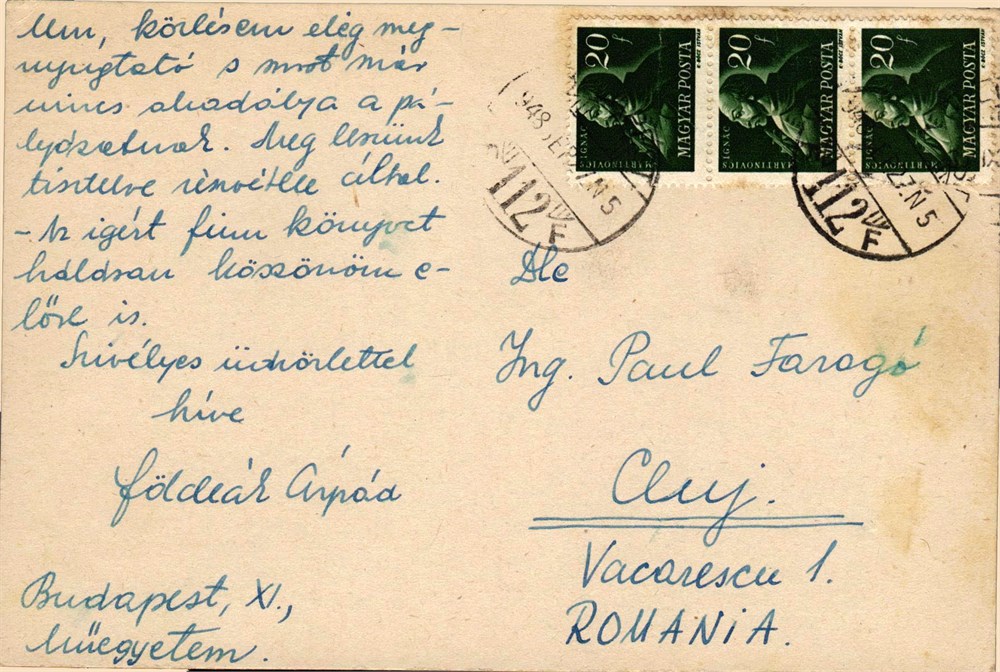 lem, közlésem elég meg-
nyugtató s most már
nincs akadálya a pá-
lyázatnak. Meg leszünk
tisztelve részvétele által.
- Az igért finn könyvet
hálásan köszönöm e-
lőre is.
Szivélyes üdvözlettel
híve
Földeák Árpád
Budapest, XI.,
Műegyetem.
20 f
MAGYAR POSTA
MARTINOVICS
IGNÁC
20 f
MAGYAR POSTA
MARTINOVICS
IGNÁC
20 f
MAGYAR POSTA
MARTINOVICS
IGNÁC
948
N 5
112
F
948
27. N 5
112
F
Ing. Paul Faragó
Cluj.
Vacarescu 1.
ROMANIA.